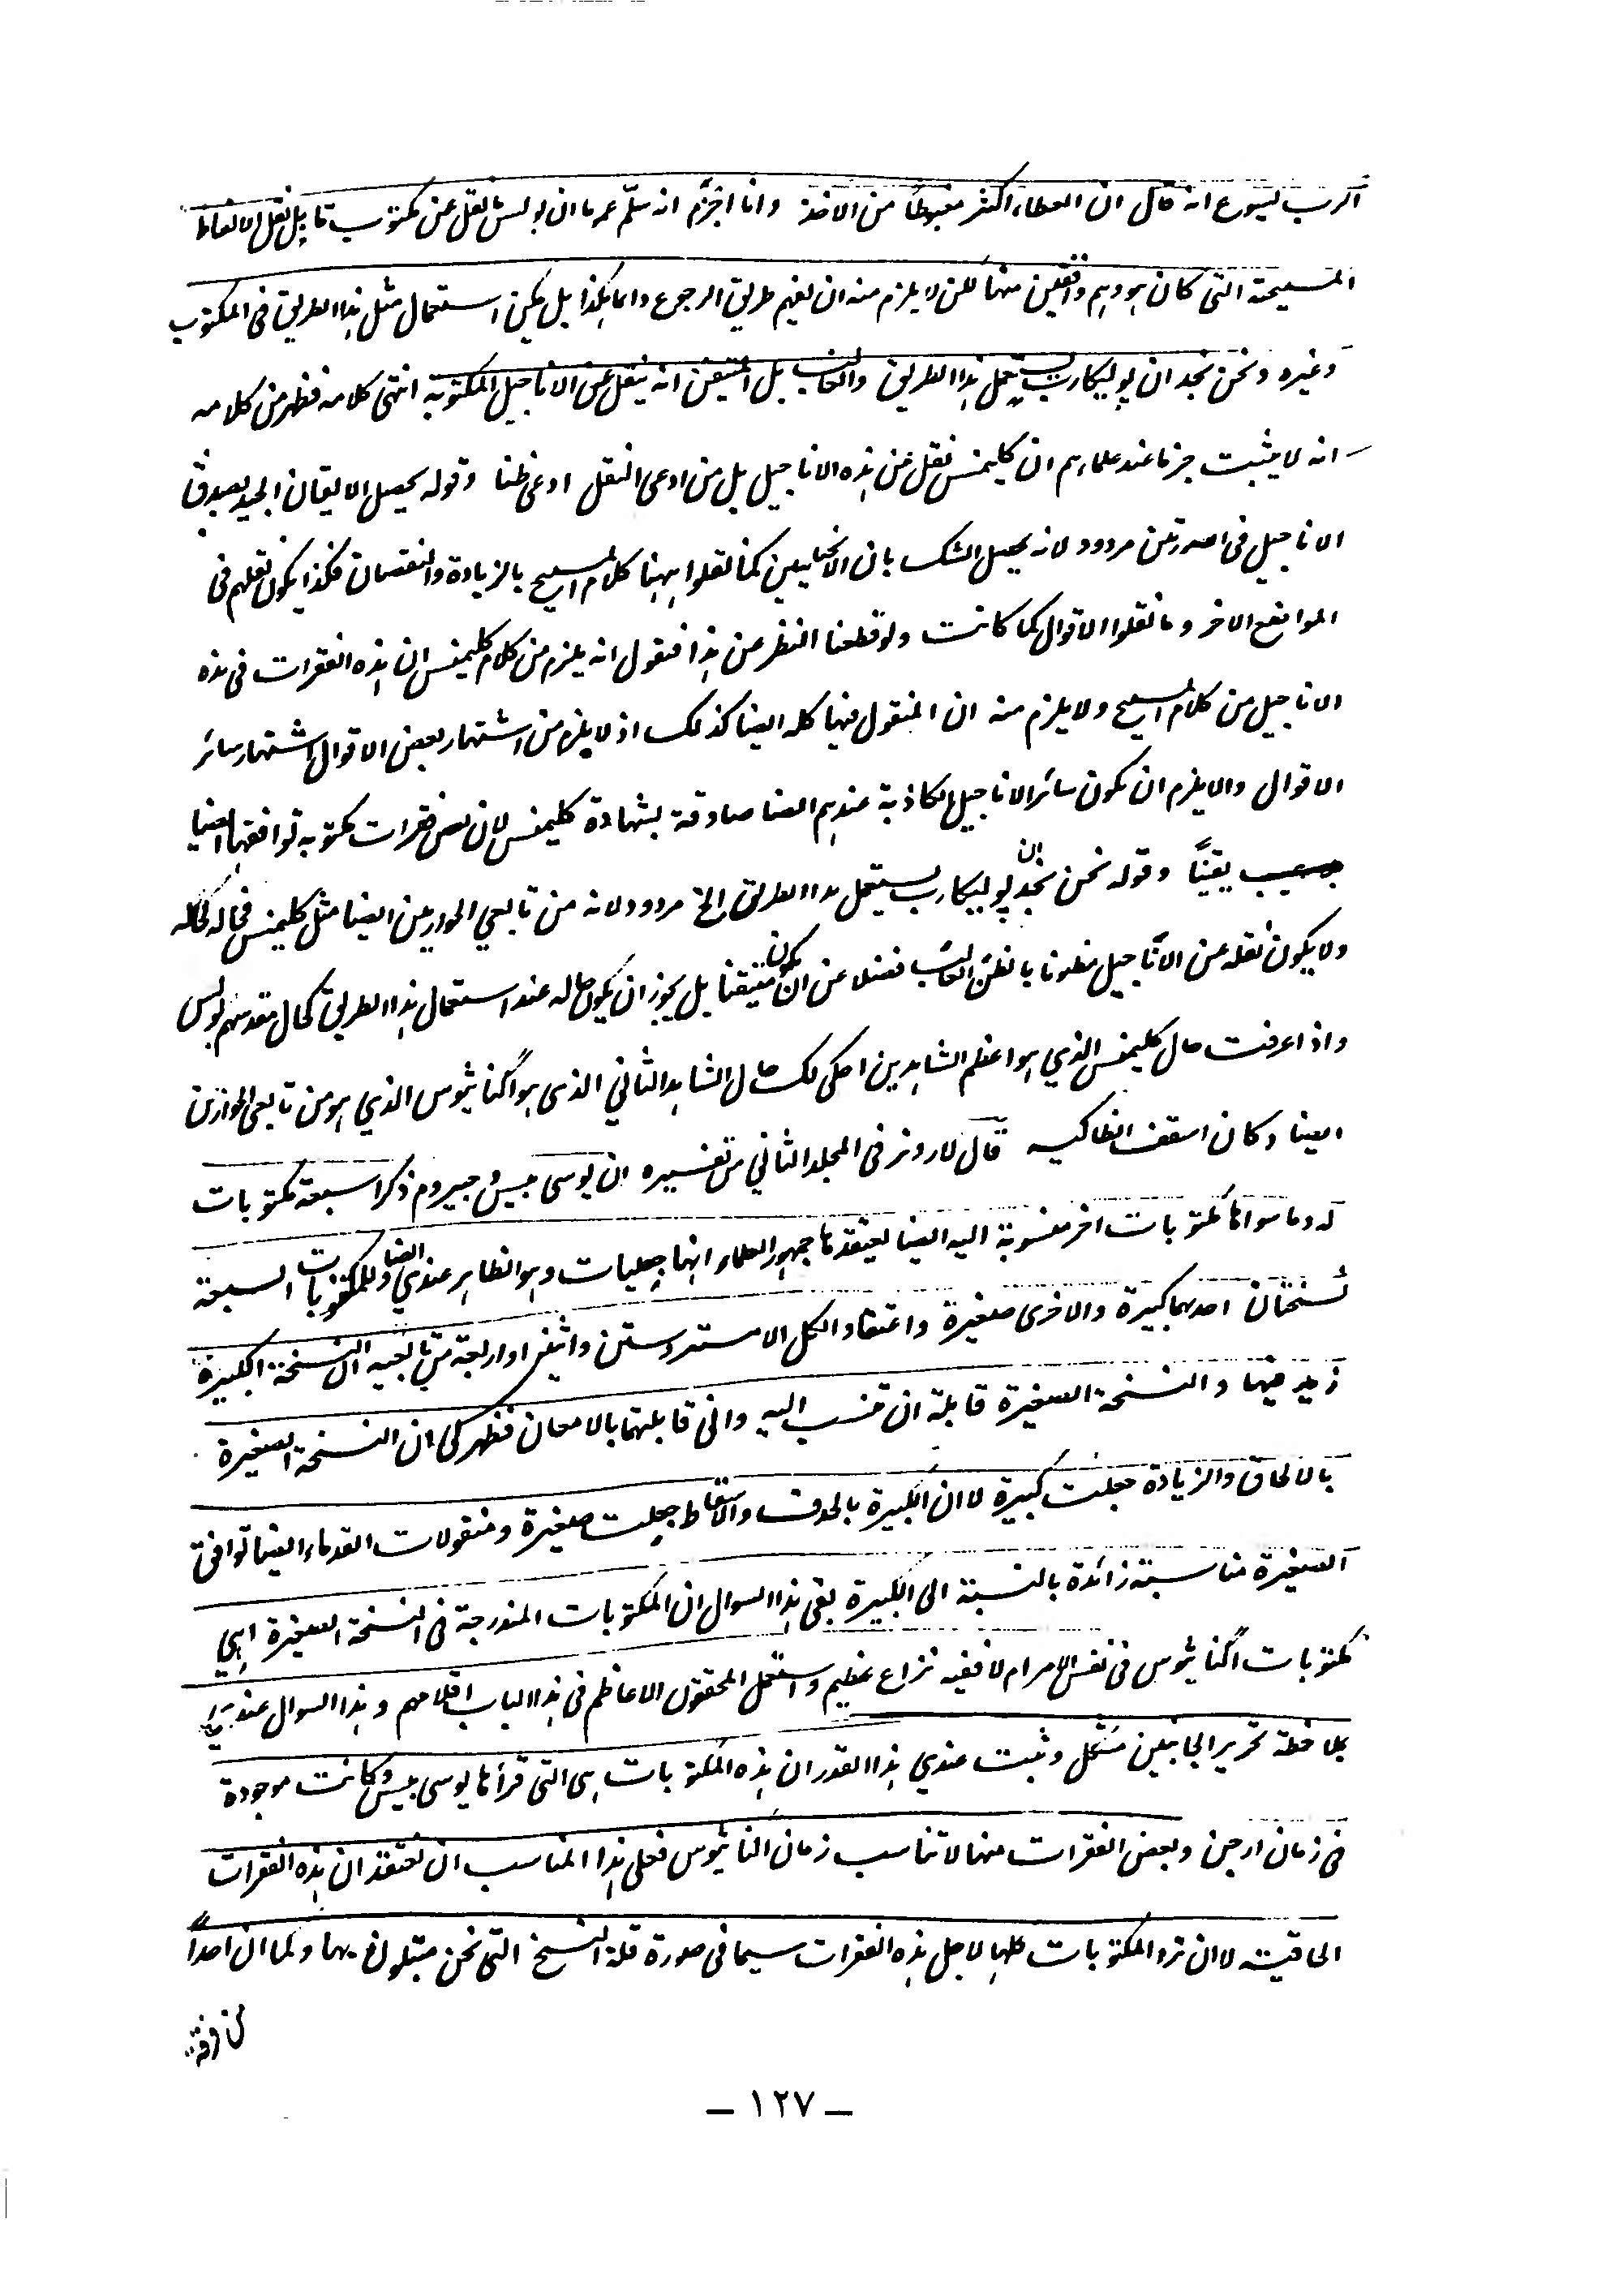 الرب ليسوع انه قال ان العطاء اكثر مغبوطا من الاخذ وانا اجزم انه سلم عموما ان بولس ما نقل عن مكتوب قابل نقل الالفاظ
المسيحية التي كان هو وهم واقفين منها لكن لا يلزم منه ان يفهم طريق الرجوع دائما هكذا بل يمكن استعمال مثل هذا الطريق في المكتوب
وغيره ونحن نجد ان پوليكارپ يستعمل هذا الطريق والغالب بل المتيقن انه ينقل عن الاناجيل المكتوبة انتهى كلامه فظهر من كلامه
انه لا يثبت جزما عند علمائهم ان كليمنس نقل عن هذه الاناجيل بل من ادعى النقل ادعى ظنا وقوله يحصل الايقان الجيد بصدق
الاناجيل في الصورتين مردود لانه يحصل الشك بان الانجيليين كما نقلوا ههنا كلام المسيح بالزيادة والنقصان فكذا يكون نقلهم في
المواقع الاخر وما نقلوا الاقوال كما كانت ولو قطعنا النظر عن هذا فنقول انه يلزم من كلام كليمنس ان هذه الفقرات في هذه
الاناجيل من كلام المسيح ولا يلزم منه ان المنقول فيها كله ايضا كذلك اذ لا يلزم من اشتهار بعض الاقوال اشتهار سائر
الاقوال والا يلزم ان يكون سائر الاناجيل الكاذبة عندهم ايضا صادقة بشهادة كليمنس لان بعض فقرات مكتوبه توافقها ايضا
يقينًا وقوله نحن نجد ان پوليكارپ يستعمل هذا الطريق الخ مردود لانه من تابعي الحواريين ايضا مثل كليمنس فحاله كحاله
ولا يكون نقله عن الاناجيل مظنونا بالظن الغالب فضلا عن ان يكون متيقنا بل يجوز ان يكون حاله عند استعمال هذا الطريق كحال مقدسهم بولس
واذا عرفت حال كليمنس الذي هو اعظم الشاهدين احكي لك حال الشاهد الثاني الذي هو اگناثيوس الذي هو من تابعي الحواريين
ايضا وكان اسقف انطاكيه قال لاردنر في المجلد الثاني من تفسيره ان يوسي بيس وجيروم ذكرا سبعة مكتوبات
له وما سواها مكتوبات اخر منسوبة اليه ايضا يعتقدها جمهور العلماء انها جعليات وهو الظاهر عندي ايضا وللمكتوبات السبعة
نسختان احدهما كبيرة والاخرى صغيرة واعتقاد الكل الا مستر وستن واثنين او اربعة من تابعيه ان النسخة الكبيرة
زيد فيها والنسخة الصغيرة قابلة ان تنسب اليه واني قابلتها بالامعان فظهر لي ان النسخة الصغيرة
بالالحاق والزيادة جعلت كبيرة لا ان الكبيرة بالحذف والاسقاط جعلت صغيرة ومنقولات القدماء ايضا توافق
الصغيرة مناسبة زائدة بالنسبة الى الكبيرة بقي هذا السوال ان المكتوبات المندرجة في النسخة الصغيرة اهي
مكتوبات اگناثيوس في نفس الامر ام لا ففيه نزاع عظيم واستعمل المحققون الاعاظم في هذا الباب اقلامهم وهذا السوال عندي
بملاحظة تحرير الجانبين مشكل وثبت عندي هذا القدر ان هذه المكتوبات هي التي قرأها يوسي بيس وكانت موجودة
في زمان ارجن وبعض الفقرات منها لا تناسب زمان اگناثيوس فعلى هذا المناسب ان نعتقد ان هذه الفقرات
الحاقية لا ان نرد المكتوبات كلها لاجل هذه الفقرات سيما في صورة قلة النسخ التي نحن مبتلون بها وكما ان احداً
من فرقة
– ١٢٧ –